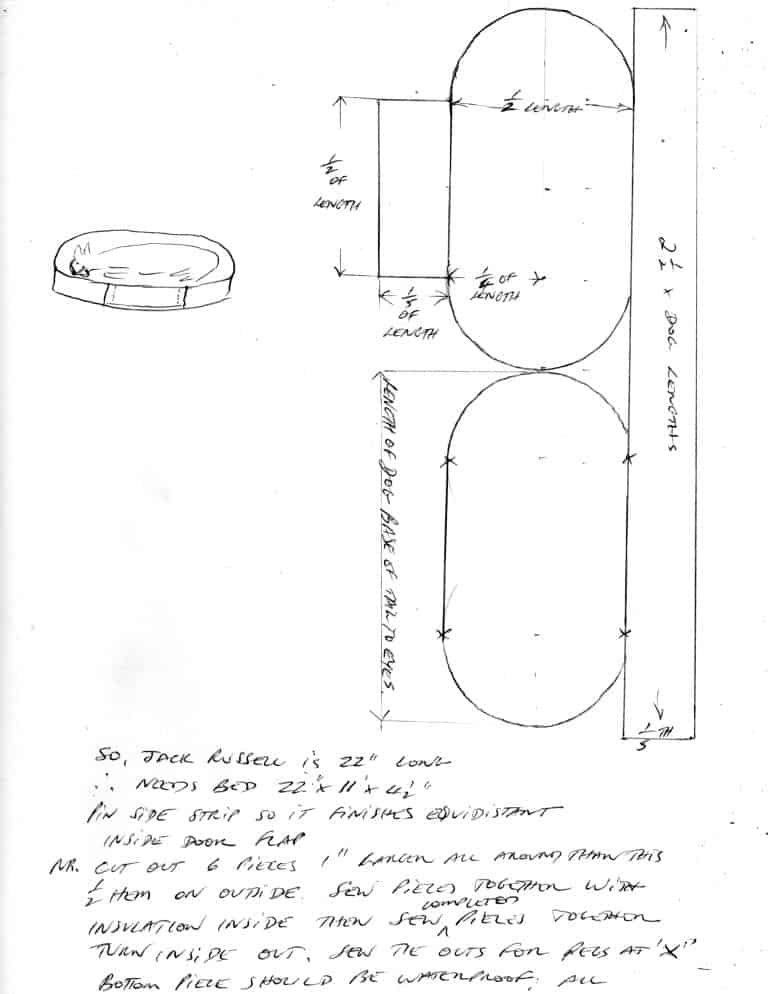 1/2 LENGTH
1/2
OF
LENGTH
1/4 OF
LENGTH
1/5
OF
LENGTH
2 1/2 x DOG LENGTHS
LENGTH OF DOG BASE OF TAIL TO EYES.
x x
x x
1/5 TH
SO, JACK RUSSELL is 22" LONG
∴ NEEDS BED 22" x 11" x 4½"
PIN SIDE STRIP SO IT FINISHES EQUIDISTANT
INSIDE DOOR FLAP
NB. CUT OUT 6 PIECES 1" LARGER ALL AROUND THAN THIS
½ HEM ON OUTSIDE. SEW PIECES TOGETHER WITH
INSULATION INSIDE THEN SEW COMPLETED PIECES TOGETHER
TURN INSIDE OUT. SEW TIE OUTS FOR PEGS AT "X"
BOTTOM PIECE SHOULD BE WATERPROOF; ALL